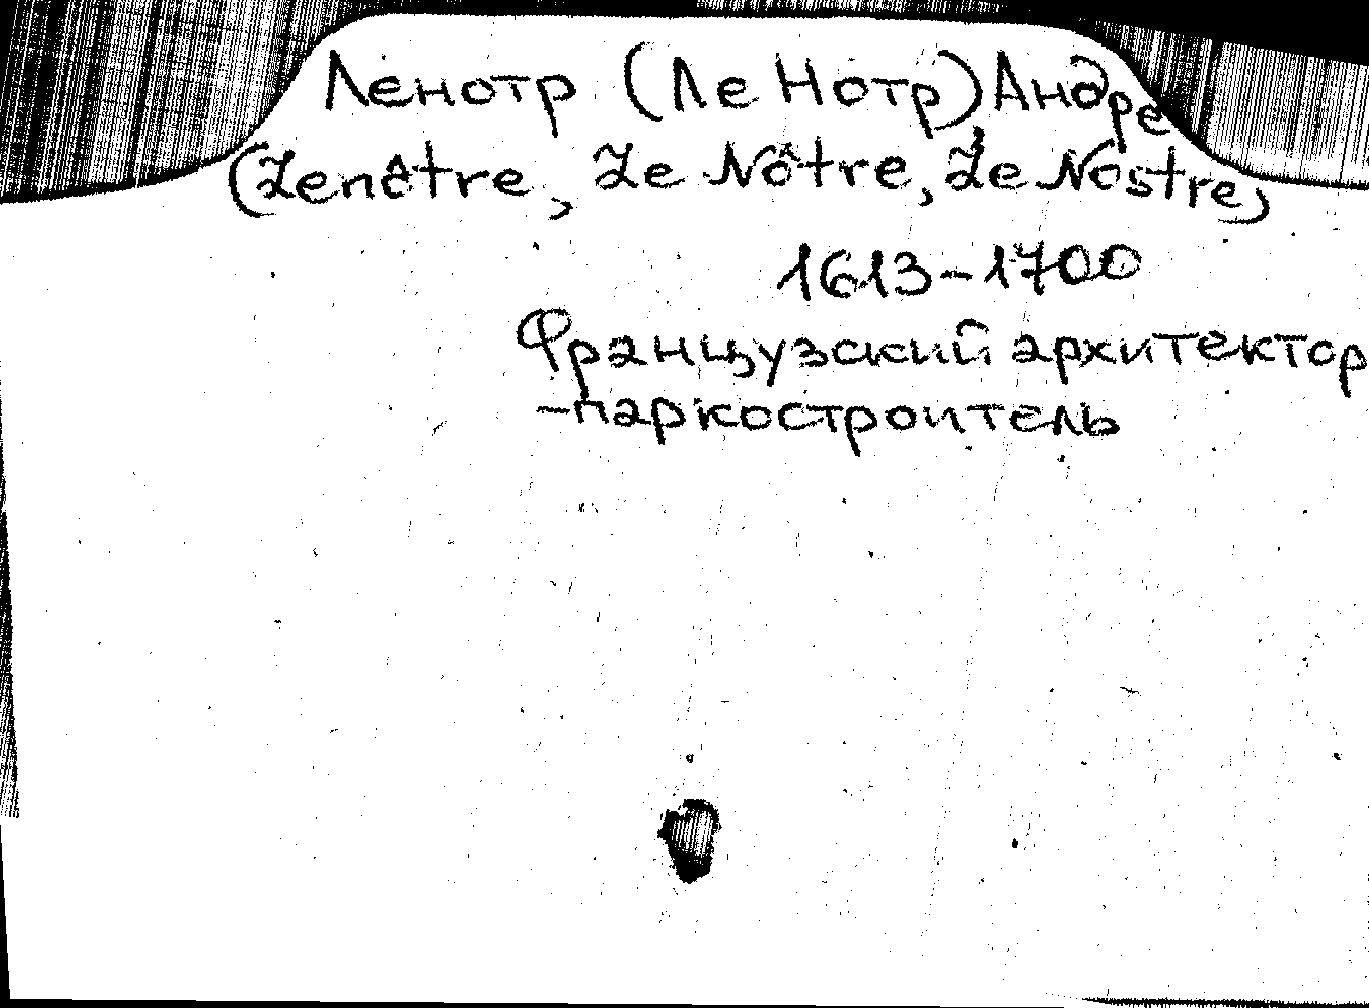 Ленотр (Ле Нотр) Андре
(Lenôtre, Le Nôtre, Le Nostre)
1613-1700
Французский архитектор
-паркостроитель